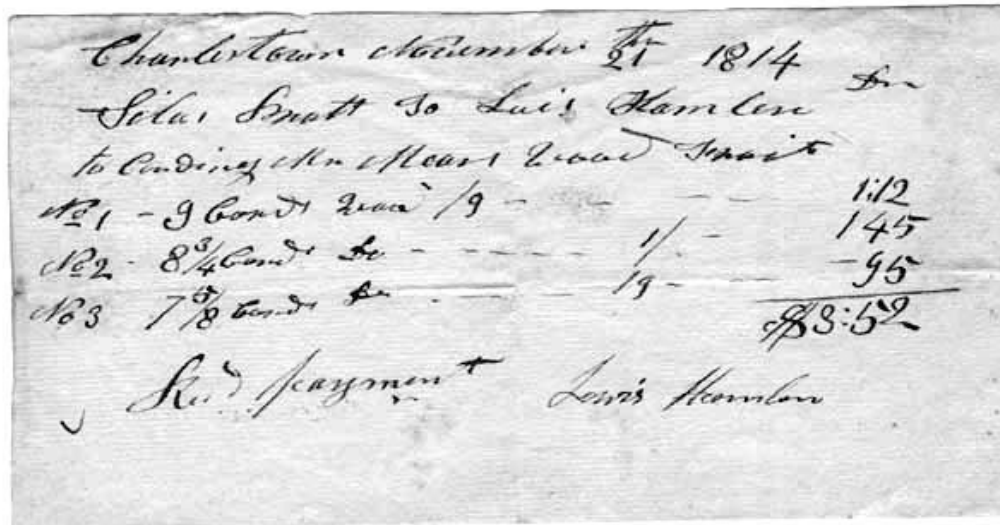 Charlestown November 21th 1814
Silas Smatt To Luis Hamlen Dr
to Cording Mr Mears Wood
No 1 - 9 Cords Wood /9 - - - 1:12
No 2 - 8 3/4 Cords Do - - - - - 1/ - 145
No 3 7 5/8 Cords Do - - - - /9 - - 95
$3:52
Recd payment Lewis Hamlen